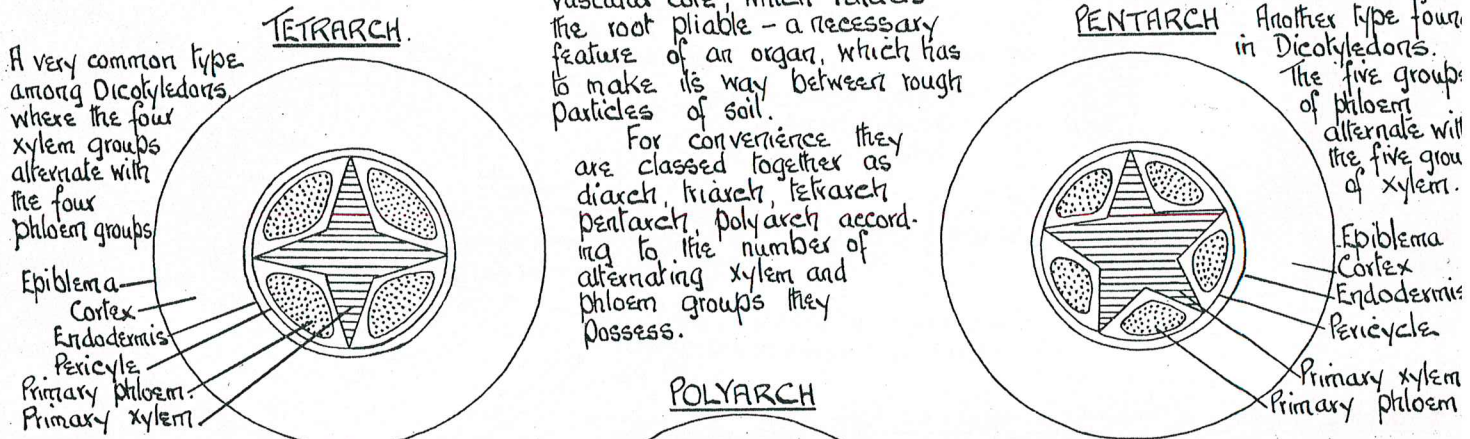 TETRARCH.
A very common type
among Dicotyledons,
where the four
xylem groups
alternate with
the four
phloem groups
Epiblema
Cortex
Endodermis
Pericyle
Primary phloem.
Primary xylem
the root pliable - a necessary
feature of an organ, which has
to make its way between rough
particles of soil.
For convenience they
are classed together as
diarch, triarch, tetrarch
pentarch, polyarch accord-
ing to the number of
alternating xylem and
phloem groups they
possess.
POLYARCH
PENTARCH
Another type
in Dicotyledons.
The five groups
of phloem
alternate
the five
of xylem.
Epiblema
Cortex
Endodermis
Pericycle
Primary xylem
Primary phloem